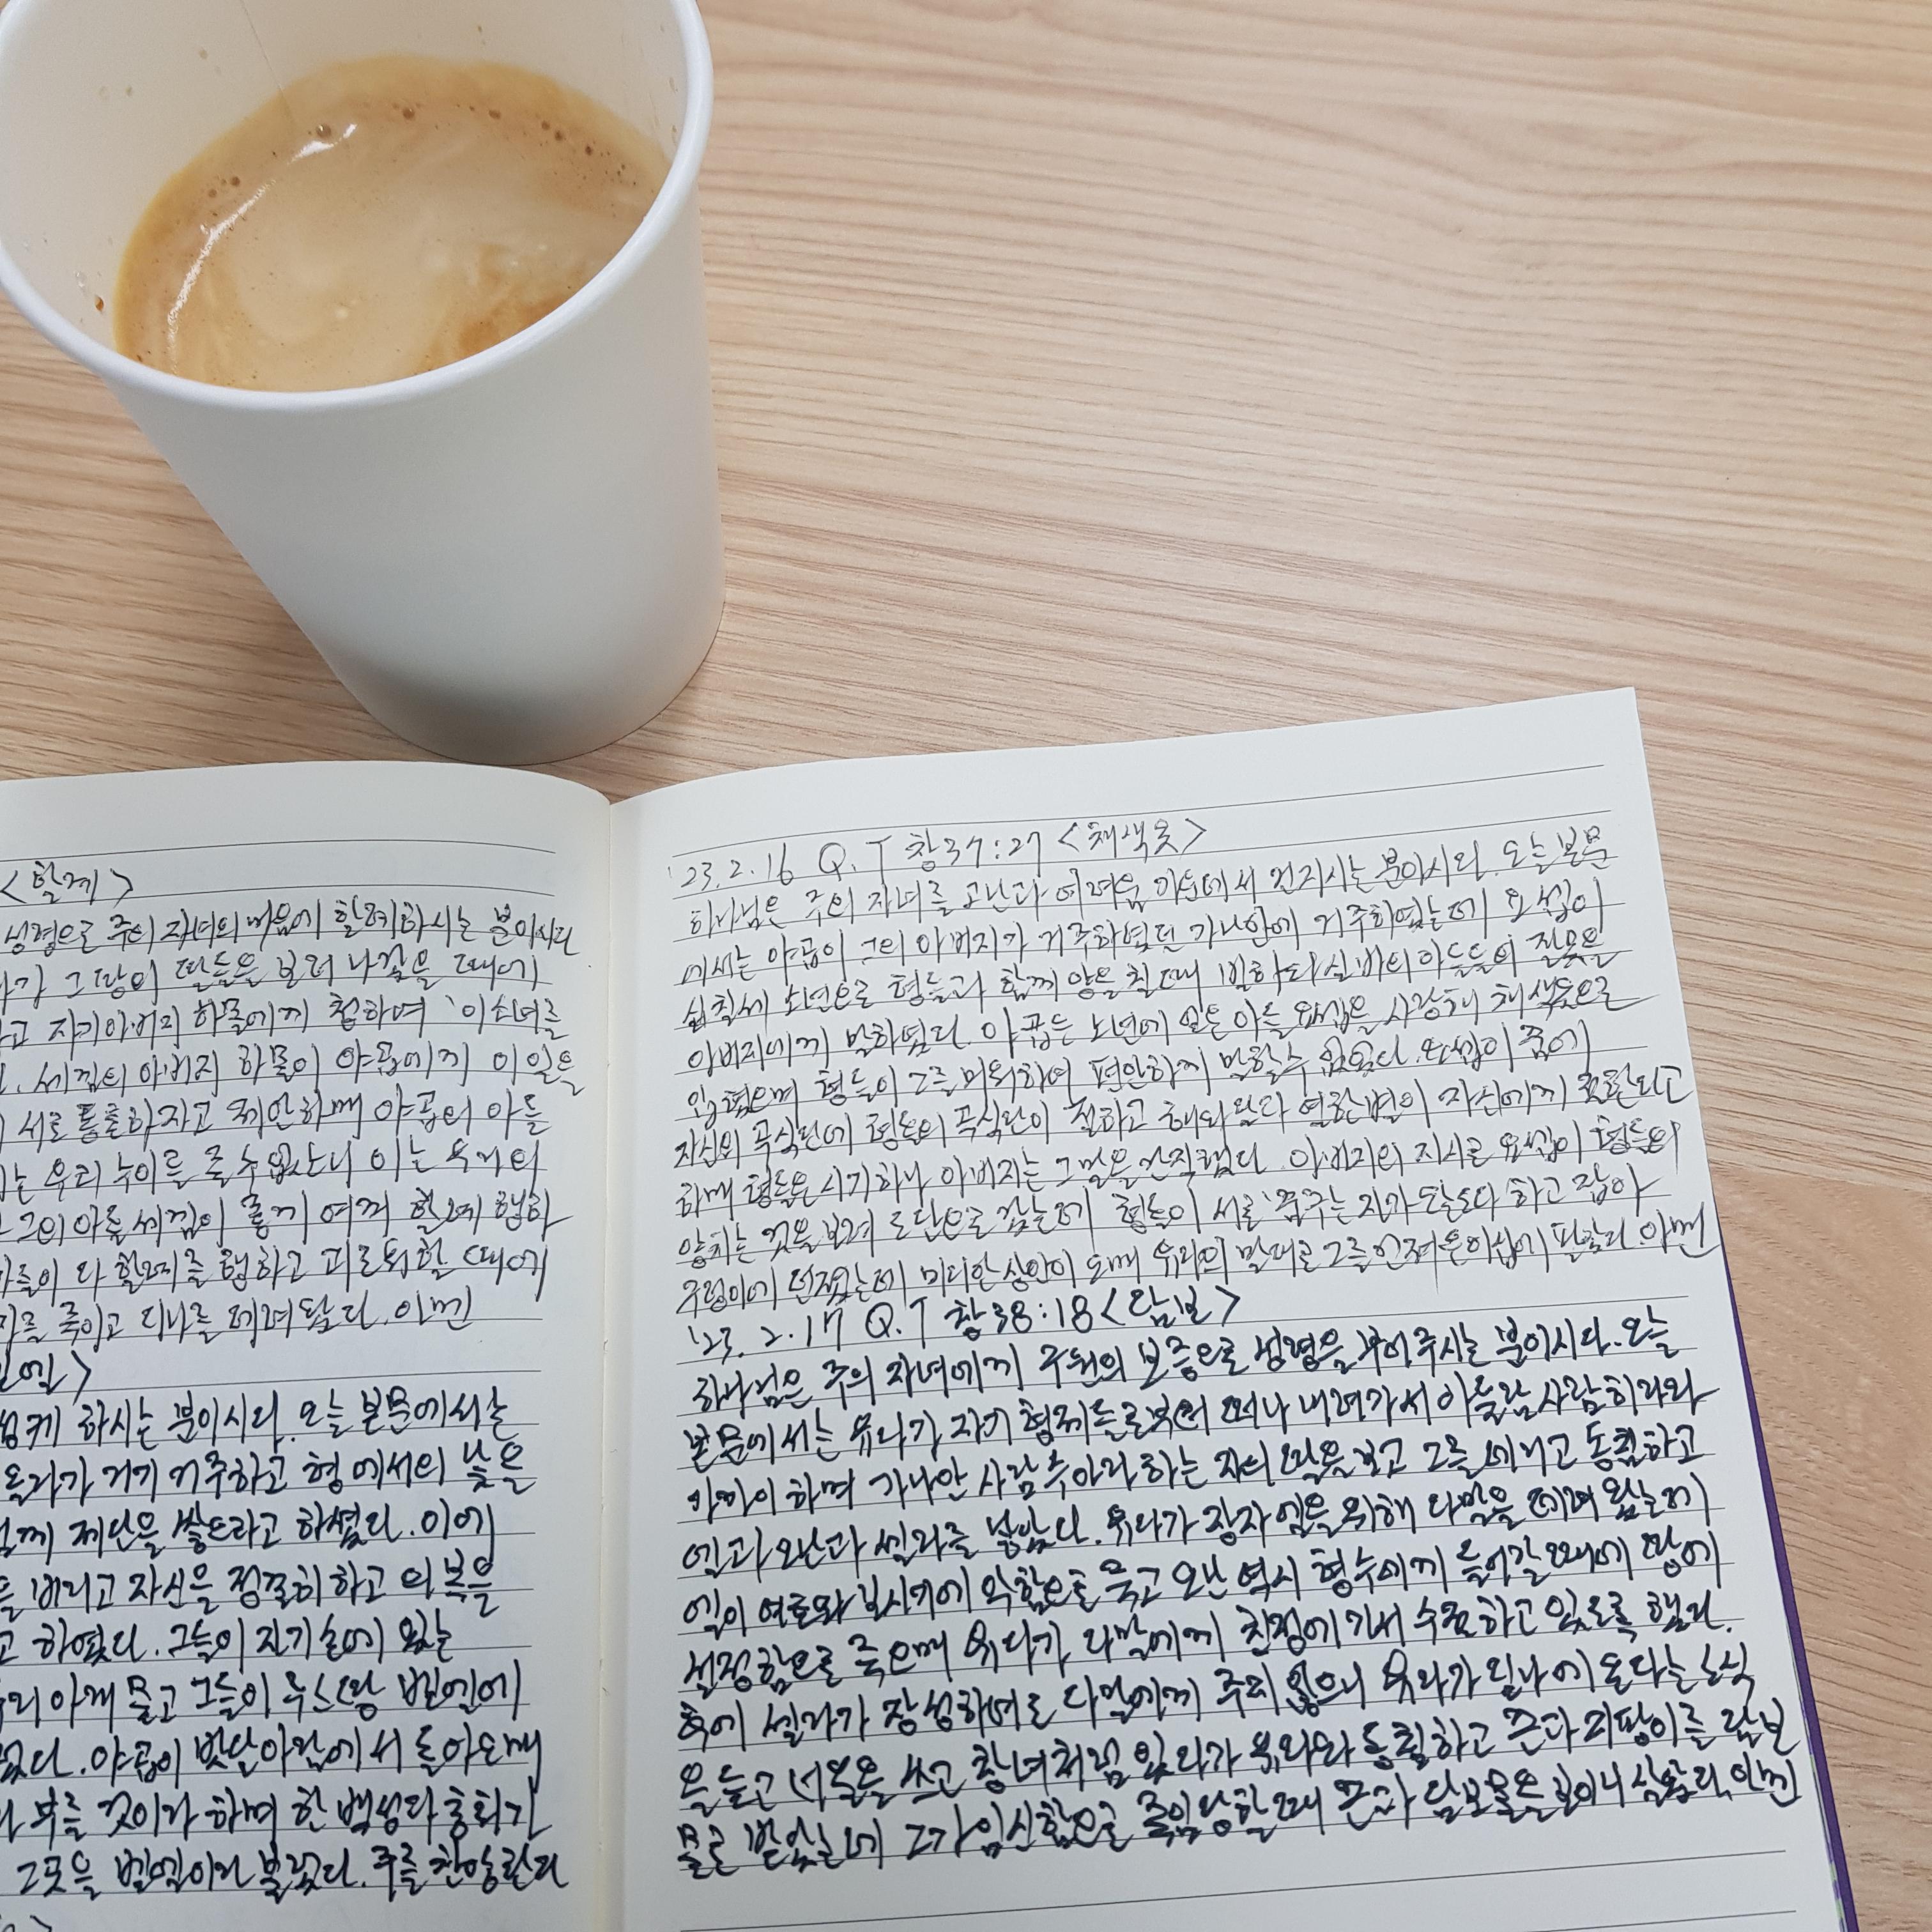 <할례>
성령으로 주의 자녀의 마음에 할례하시는 분이시다
가 그 땅의 딸들을 보러 나갔을 때에
고 자기 아버지 하몰에게 청하여 '이 소녀를
세겜의 아버지 하몰이 야곱에게 이 일을
서로 통혼하자고 제안하매 야곱의 아들
는 우리 누이를 줄 수 없노니 이는 우리의
그의 아들 세겜이 좋게 여겨 할례 행하
들이 다 할례를 행하고 고통할 때에
를 죽이고 디나를 데려왔다. 아멘
엘>
케 하시는 분이시다. 오늘 본문에서는
올라가 거기 거주하고 형 에서의 낯을
께 제단을 쌓으라고 하셨다. 이에
버리고 자신을 정결히 하고 의복을
고 하였다. 그들이 자기 손에 있는
리 아래 묻고 그들이 루스 땅 벧엘에
다. 야곱이 밧단아람에서 돌아오매
부를 것이라 하며 한 백성과 총회가
그곳을 벧엘이라 불렀다. 주를 찬양한다
'23. 2. 16 Q.T 창37:27 <채색옷>
하나님은 주의 자녀를 고난과 어려움 가운데서 건지시는 분이시다. 오늘 본문
에서는 야곱이 그의 아버지가 거주하였던 가나안에 거주하였는데 요셉이
십칠세 소년으로 형들과 함께 양을 칠 때 빌하와 실바의 아들들의 잘못을
아버지에게 말하였다. 야곱은 노년에 얻은 아들 요셉을 사랑해 채색옷으로
입혔으며 형들이 그를 미워하여 편안하게 말할 수 없었다. 요셉이 꿈에
자신의 곡식단에 형들의 곡식단이 절하고 해와 달과 열한 별이 자신에게 절한다고
하매 형들은 시기하나 아버지는 그 말을 간직했다. 아버지의 지시로 요셉이 형들의
양치는 것을 보려 도단으로 갔는데 형들이 서로 '꿈꾸는 자가 오는도다 하고 잡아
구덩이에 던졌는데 미디안 상인이 오매 유다의 말대로 그를 건져 은 이십에 팔았다. 아멘
'23. 2. 17 Q.T 창38:18 <담보>
하나님은 주의 자녀에게 구원의 보증으로 성령을 부어주시는 분이시다. 오늘
본문에서는 유다가 자기 형제들로부터 떠나 내려가서 아둘람 사람 히라와
가까이 하며 가나안 사람 수아라 하는 자의 딸을 보고 그를 데리고 동침하고
엘과 오난과 셀라를 낳았다. 유다가 장자 엘을 위해 다말을 데려왔는데
엘이 여호와 보시기에 악함으로 죽고 오난 역시 형수에게 들어갈 때에 땅에
설정함으로 죽으매 유다가 다말에게 친정에 가서 수절하고 있도록 했다.
후에 셀라가 장성하여도 다말에게 주지 않으니 유다가 딤나에 온다는 소식
을 듣고 너울을 쓰고 창녀처럼 있다가 유다와 동침하고 끈과 지팡이를 담보
물로 받았는데 그가 임신함으로 죽임당할 때 끈과 담보물을 보이니 살았다. 아멘